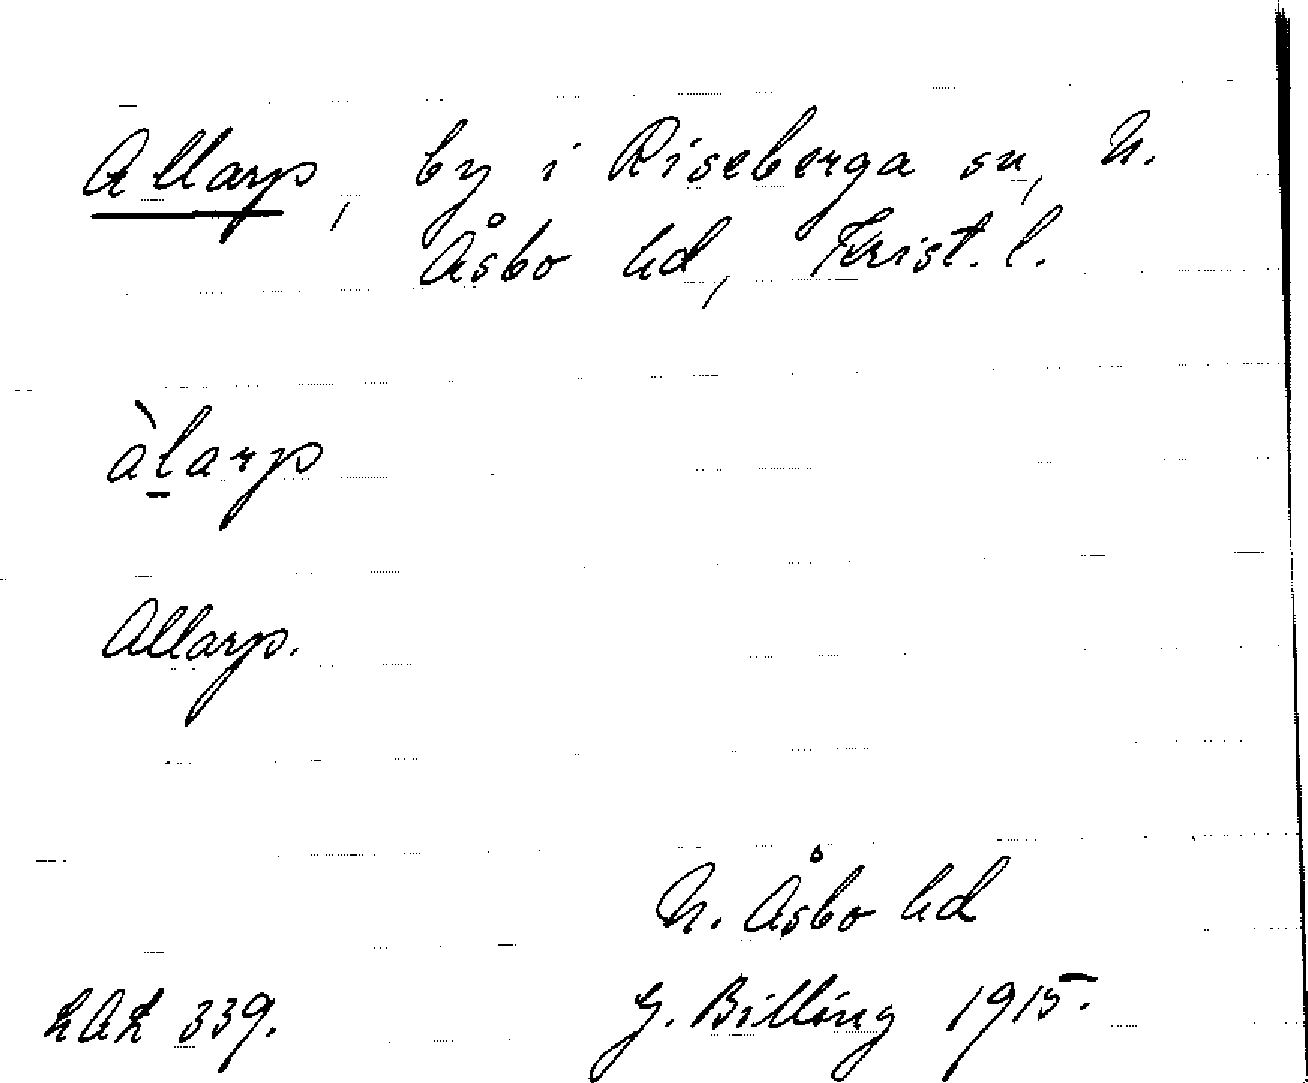 Allarp, by i Riseberga sn, N.
Åsbo hd, Krist. l.
àl̠arp
Allarp.
N. Åsbo hd
LAL 339. G. Billing 1915.